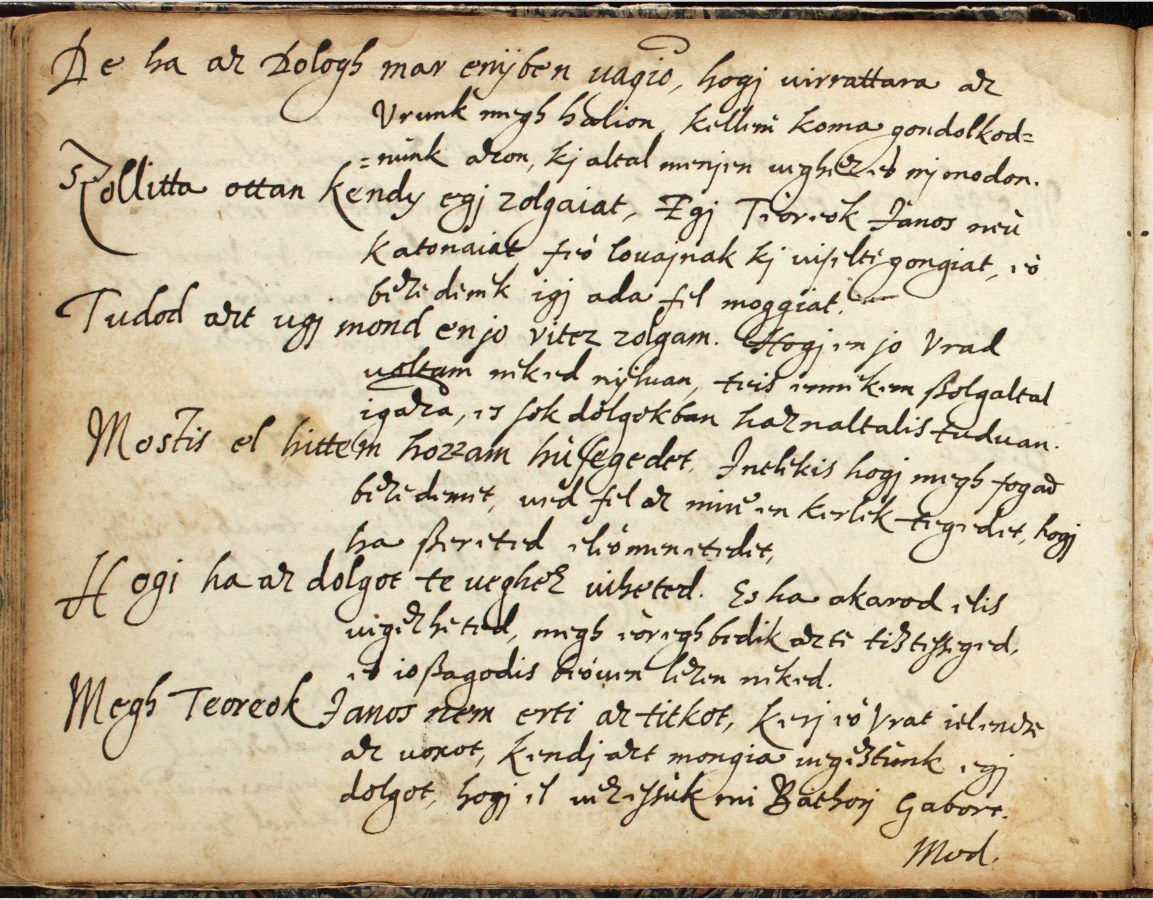 De ha az Dologh mar enyben uagio, hogj uirrattara az
Vrunk megh halion, kellem koma gondolkod=
=nunk azon, kj altal menjen ueghez es mj modon.
Szollitta ottan Kendy egj zolgaiat, Egj Teoreok Janos neu
Katonaiat feo louajnak kj uiselte gongiat, eo
bezedenek igj ada fel moggiat.
Tudod azt ugj mond en jo vitez zolgam. Hogj en jo Vrad
uoltam neked nyluan, teis ennekem ßolgaltal
igazan, es sok dolgokban haznaltalis tuduan.
Mostis el hittem hozzam hűsegedet. Intlekis hogj megh fogad
bezedemet, ued fel az mire en kerlek tegedet, hogj
ha ßereted eleomenetedet,
Hogi ha az dolgot te veghez uiheted. Es ha akarod elis
uigezheted, megh eoreghbedik azte tiztesseged,
es ioßagodis beowen lezen neked.
Megh Teoreok Janos nem erti az titkot, Kerj eo Vrat ielencze
az uoxot, Kendj azt mongia uegeztunk egj
dolgot, hogj el uezessuk mi Bathorj Gabort.
Mod.